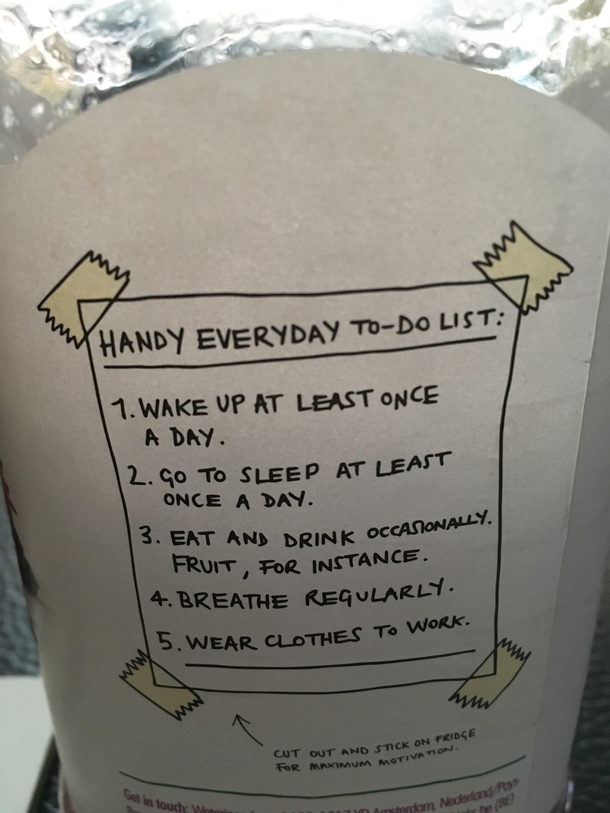 HANDY EVERYDAY TO-DO LIST:
1. WAKE UP AT LEAST ONCE
A DAY.
2. GO TO SLEEP AT LEAST
ONCE A DAY.
3. EAT AND DRINK OCCASIONALLY.
FRUIT, FOR INSTANCE.
4. BREATHE REGULARLY.
5. WEAR CLOTHES TO WORK.
CUT OUT AND STICK ON FRIDGE
FOR MAXIMUM MOTIVATION.
Get in touch: Amsterdam, Nederland/Pays
be (BE)